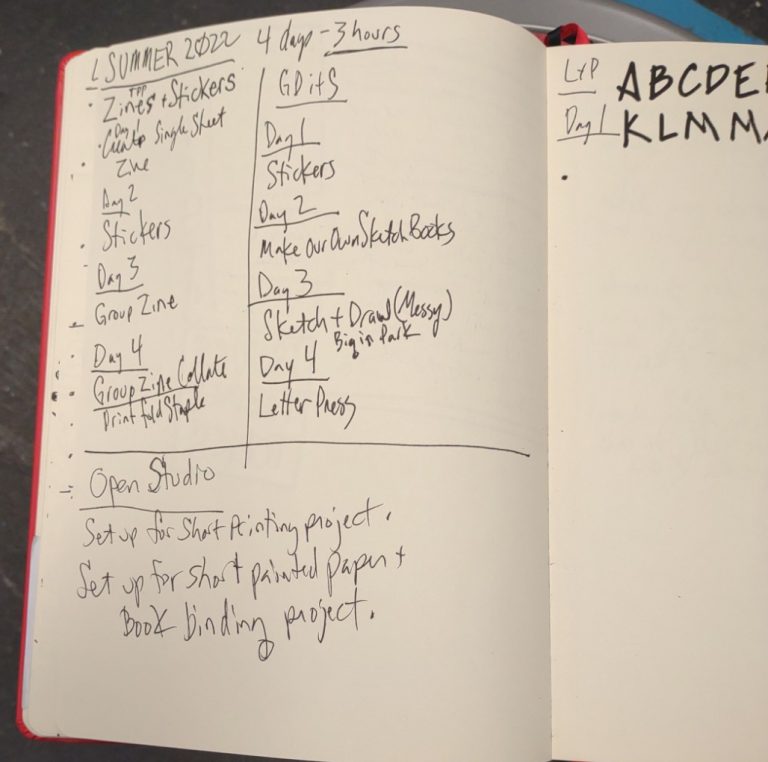 SUMMER 2022 4 days - 3 hours
Zines + Stickers
Day 1
Create Single Sheet
Zine
Day 2
Stickers
Day 3
Group Zine
Day 4
Group Zine Collate
Print fold Staple
GDitS
Day 1
Stickers
Day 2
Make Our Own Sketch Books
Day 3
Sketch + Draw (Messy)
Big in Park
Day 4
Letter Press
Open Studio
Set up for short Printing project.
Set up for short painted paper +
Book binding project.
LxP ABCDE
Day 1 KLMM